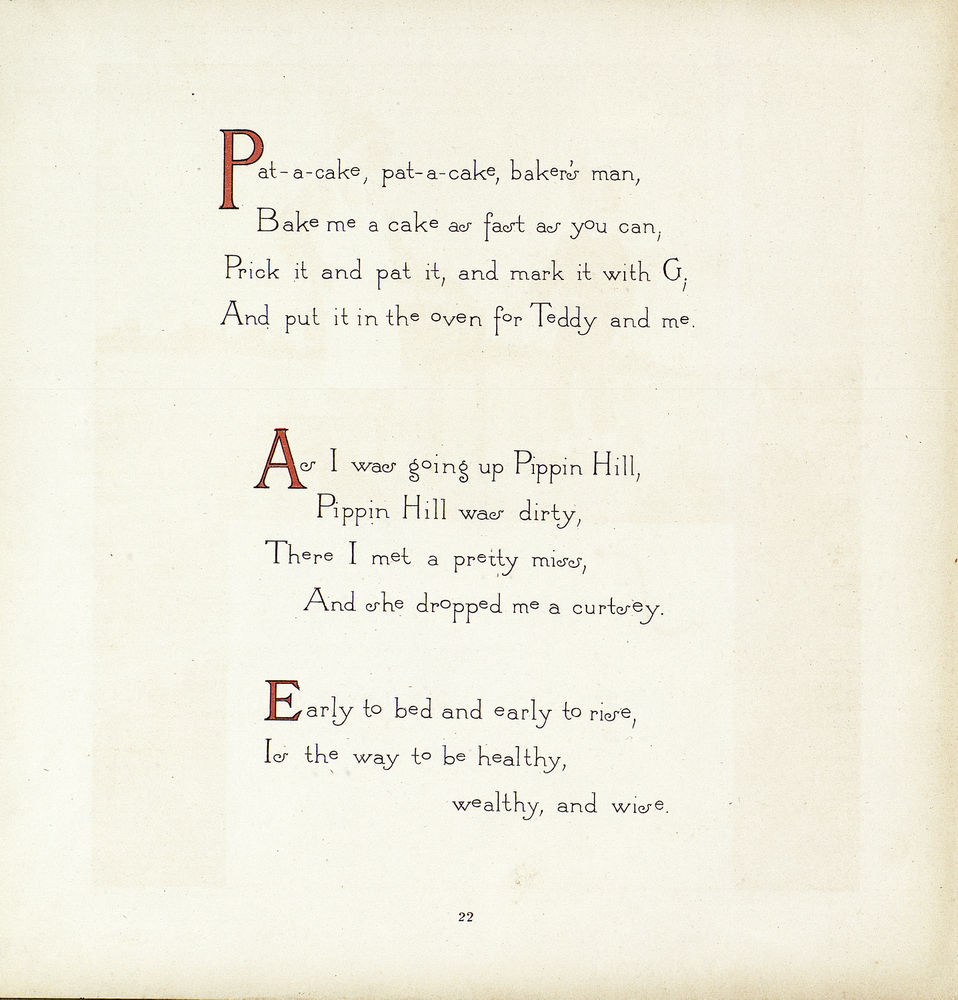 Pat-a-cake, pat-a-cake, baker's man,
Bake me a cake as fast as you can;
Prick it and pat it, and mark it with G;
And put it in the oven for Teddy and me.
As I was going up Pippin Hill,
Pippin Hill was dirty,
There I met a pretty miss,
And she dropped me a curtsey.
Early to bed and early to rise,
Is the way to be healthy,
wealthy, and wise.
22